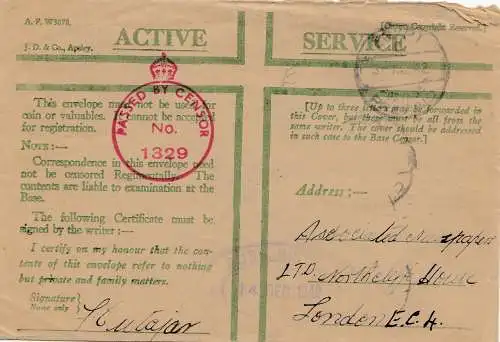 A. F. W3078.
[Crown Copyright Reserved.]
J. D. & Co., Apsley.
ACTIVE SERVICE
PASSED BY CENSOR
No.
1329
This envelope must not be used for
coin or valuables. It cannot be accepted
for registration.
NOTE:—
Correspondence in this envelope need
not be censored Regimentally. The
contents are liable to examination at the
Base.
The following Certificate must be
signed by the writer:—
I certify on my honour that the con-
tents of this envelope refer to nothing
but private and family matters.
Signature
Name only
[Up to three letters may be forwarded in
this Cover, but these must be all from the
same writer. The cover should be addressed
in such case to the Base Censor.]
Address:—
Associated Newspapers
LTD. Northcliffe House
London E.C.4.